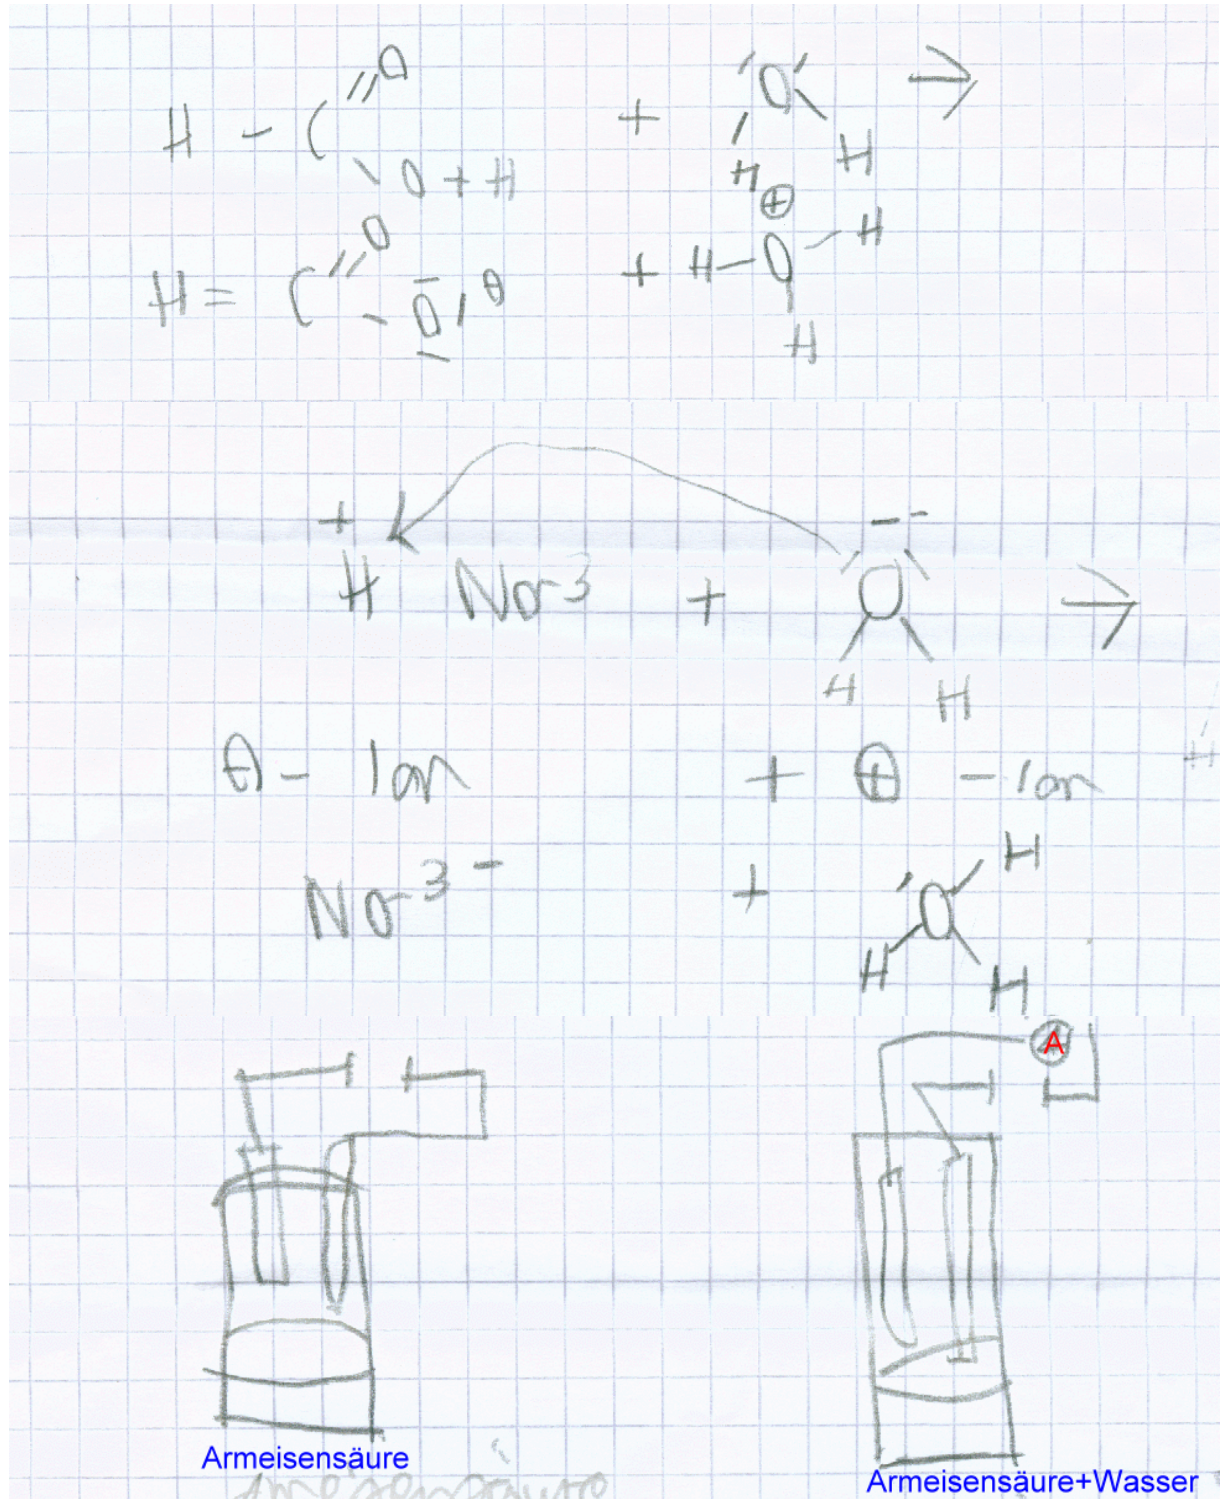 O
H - C + O →
O + H H H
O ⊕
H = C + H - O - H
O ⊖ H
+
H No-3 + O →
H H
⊖ - Ion + ⊕ - Ion
H
No-3 - + O
H H
A
Armeisensäure
Armeisensäure+Wasser